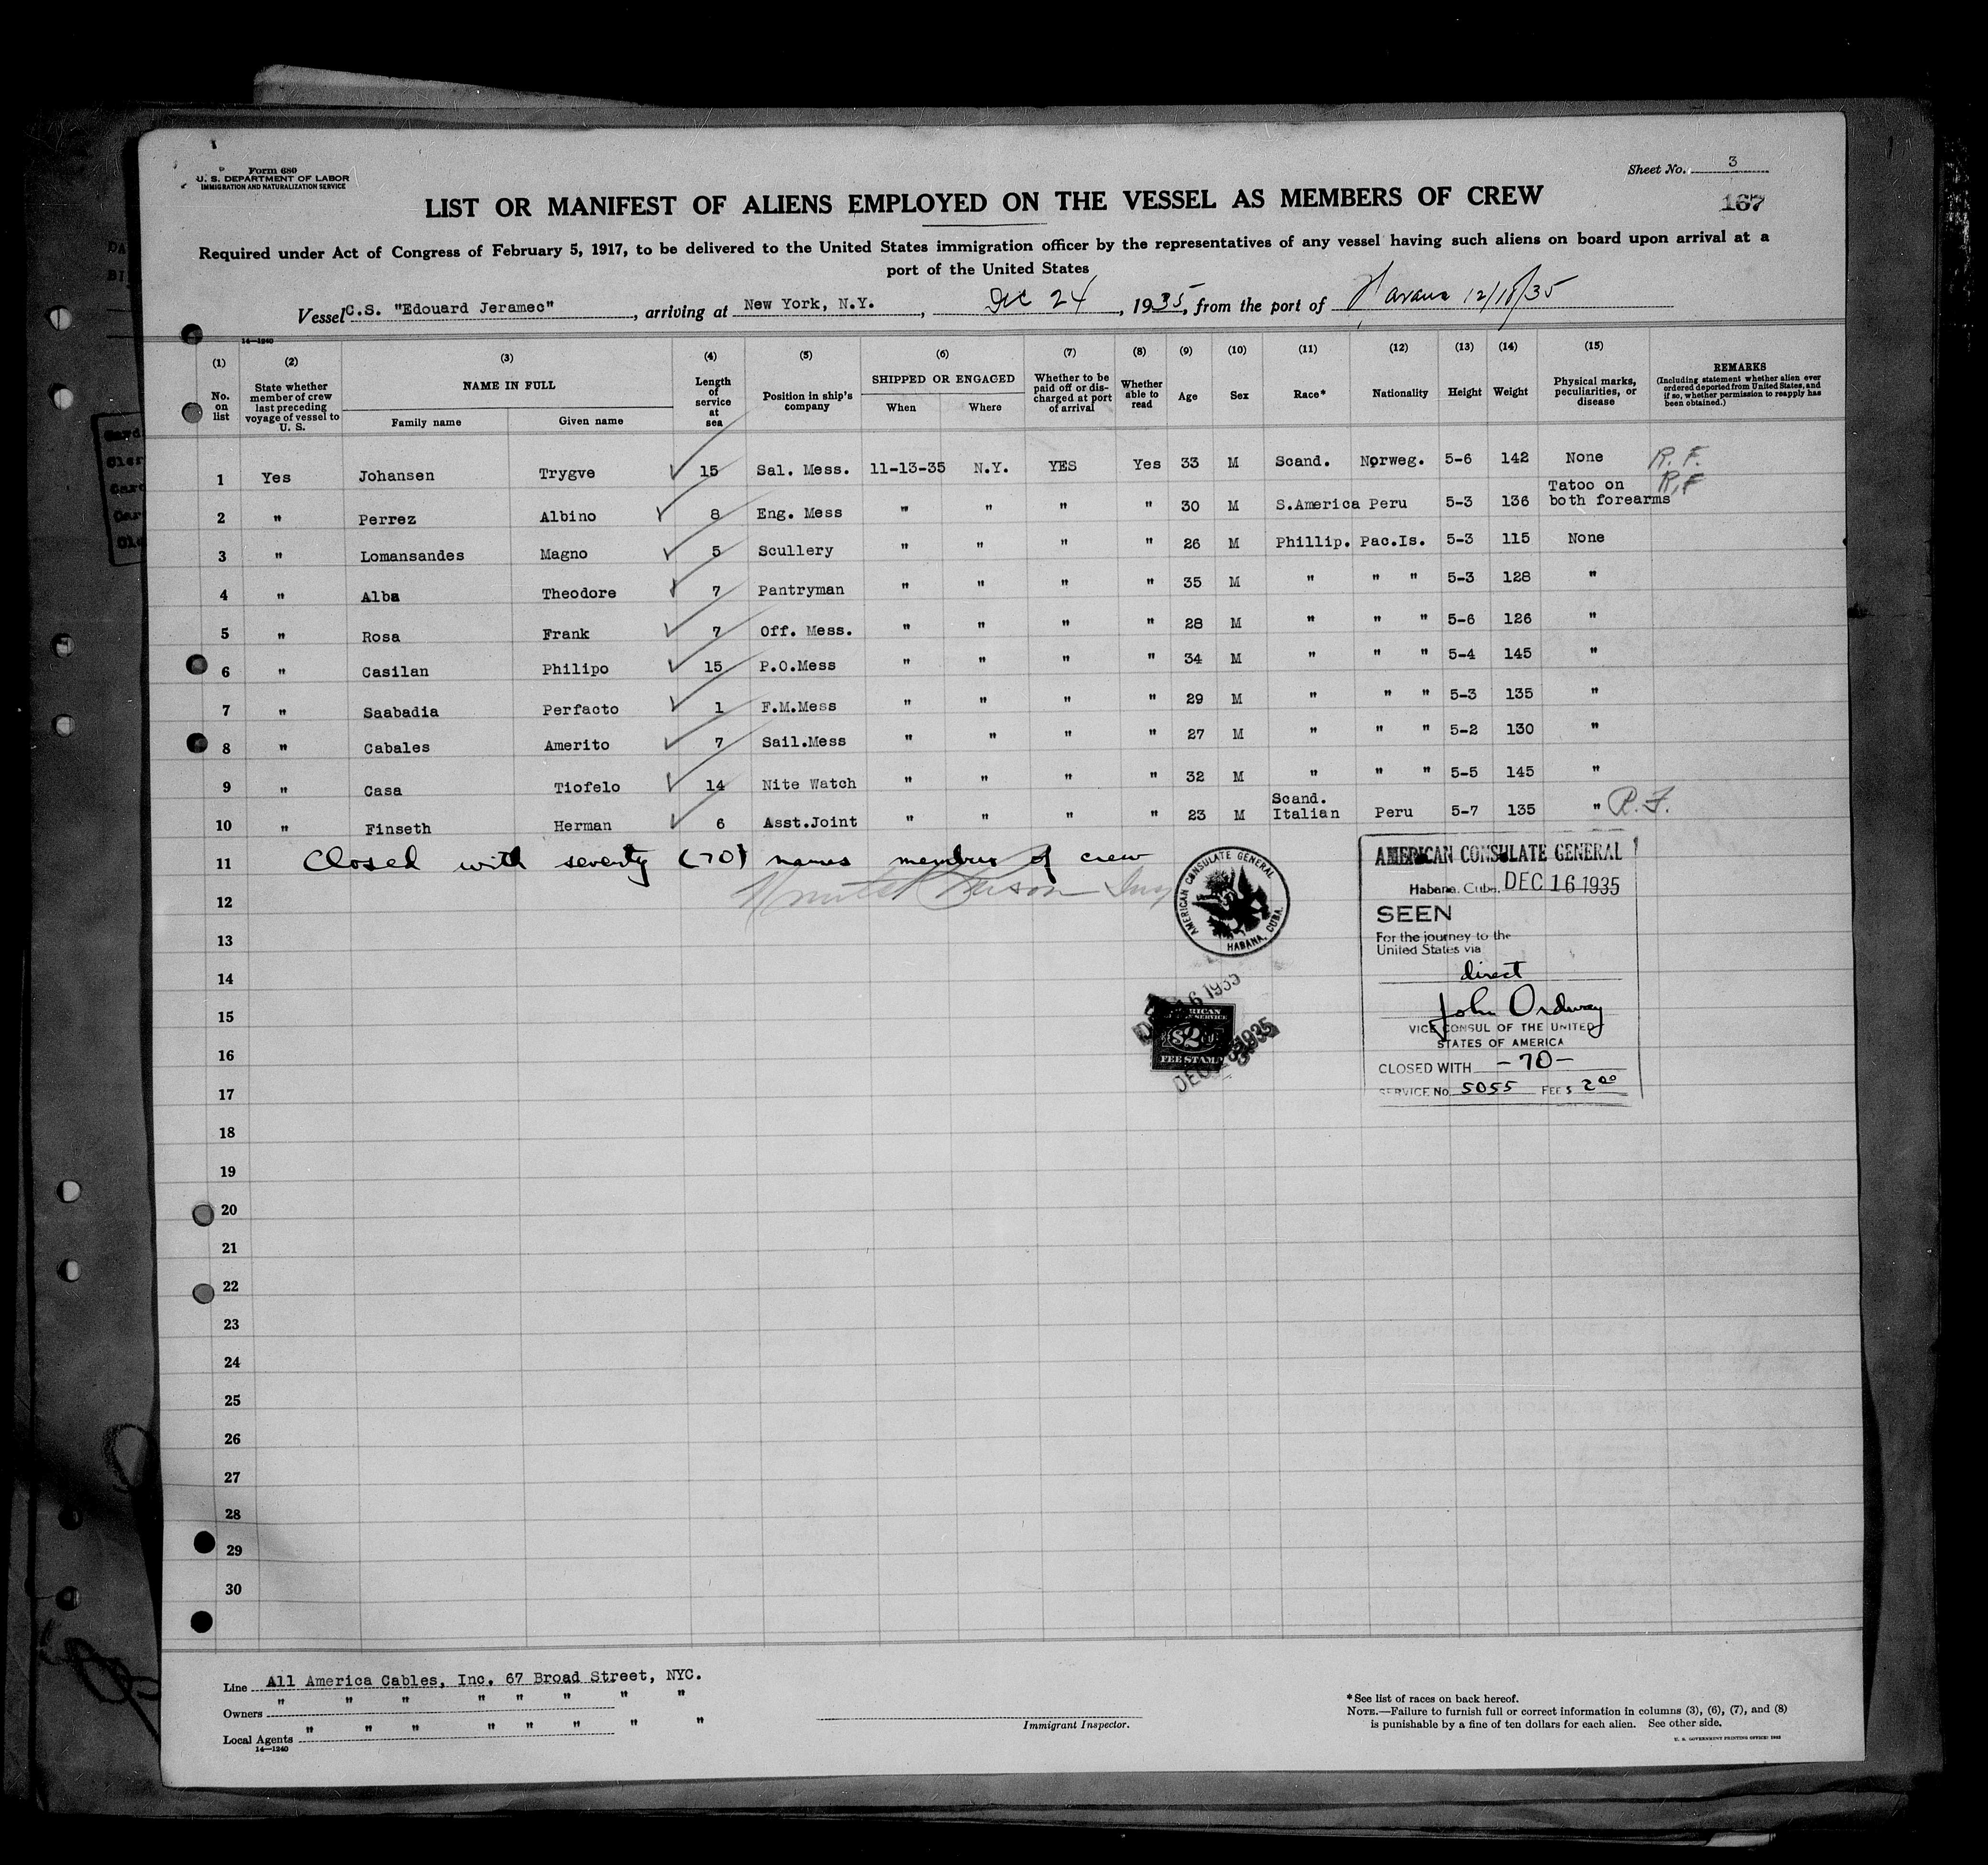 Form 680
U. S. DEPARTMENT OF LABOR
IMMIGRATION AND NATURALIZATION SERVICE
Sheet No. 3
167
LIST OR MANIFEST OF ALIENS EMPLOYED ON THE VESSEL AS MEMBERS OF CREW
Required under Act of Congress of February 5, 1917, to be delivered to the United States immigration officer by the representatives of any vessel having such aliens on board upon arrival at a
port of the United States
Vessel C.S. "Edouard Jeramec", arriving at New York, N.Y., Dec 24, 1935, from the port of Havana 12/18/35
14—1240
(1) (2) (3) (4) (5) (6) (7) (8) (9) (10) (11) (12) (13) (14) (15)
No. on list State whether member of crew last preceding voyage of vessel to U. S. NAME IN FULL Family name Given name Length of service at sea Position in ship's company SHIPPED OR ENGAGED When Where Whether to be paid off or discharged at port of arrival Whether able to read Age Sex Race* Nationality Height Weight Physical marks, peculiarities, or disease REMARKS (Including statement whether alien ever ordered deported from United States, and if so, whether permission to reapply has been obtained.)
1 Yes Johansen Trygve 15 Sal. Mess. 11-13-35 N.Y. YES Yes 33 M Scand. Norweg. 5-6 142 None R. F.
2 " Perrez Albino 8 Eng. Mess " " " " 30 M S.America Peru 5-3 136 Tatoo on both forearms R.F
3 " Lomansandes Magno 5 Scullery " " " " 26 M Phillip. Pac.Is. 5-3 115 None
4 " Alba Theodore 7 Pantryman " " " " 35 M " " " 5-3 128 "
5 " Rosa Frank 7 Off. Mess. " " " " 28 M " " " 5-6 126 "
6 " Casilan Philipo 15 P.O.Mess " " " " 34 M " " " 5-4 145 "
7 " Saabadia Perfacto 1 F.M.Mess " " " " 29 M " " " 5-3 135 "
8 " Cabales Amerito 7 Sail.Mess " " " " 27 M " " " 5-2 130 "
9 " Casa Tiofelo 14 Nite Watch " " " " 32 M " " " 5-5 145 "
10 " Finseth Herman 6 Asst.Joint " " " " 23 M Scand. Italian Peru 5-7 135 " R. F.
11 Closed with seventy (70) names members of crew
12
13
14
15
16
17
18
19
20
21
22
23
24
25
26
27
28
29
30
AMERICAN CONSULATE GENERAL
HABANA, CUBA.
DEC 16 1935
FEE STAMP
AMERICAN CONSULATE GENERAL
Habana, Cuba, DEC 16 1935
SEEN
For the journey to the
United States via
direct
John Ordway
VICE CONSUL OF THE UNITED
STATES OF AMERICA
CLOSED WITH -70-
SERVICE No. 5055 FEE $ 2.00
Line All America Cables, Inc. 67 Broad Street, NYC.
Owners " " " " " " " "
Local Agents " " " " " " " "
14—1240
Immigrant Inspector.
*See list of races on back hereof.
NOTE.—Failure to furnish full or correct information in columns (3), (6), (7), and (8)
is punishable by a fine of ten dollars for each alien. See other side.